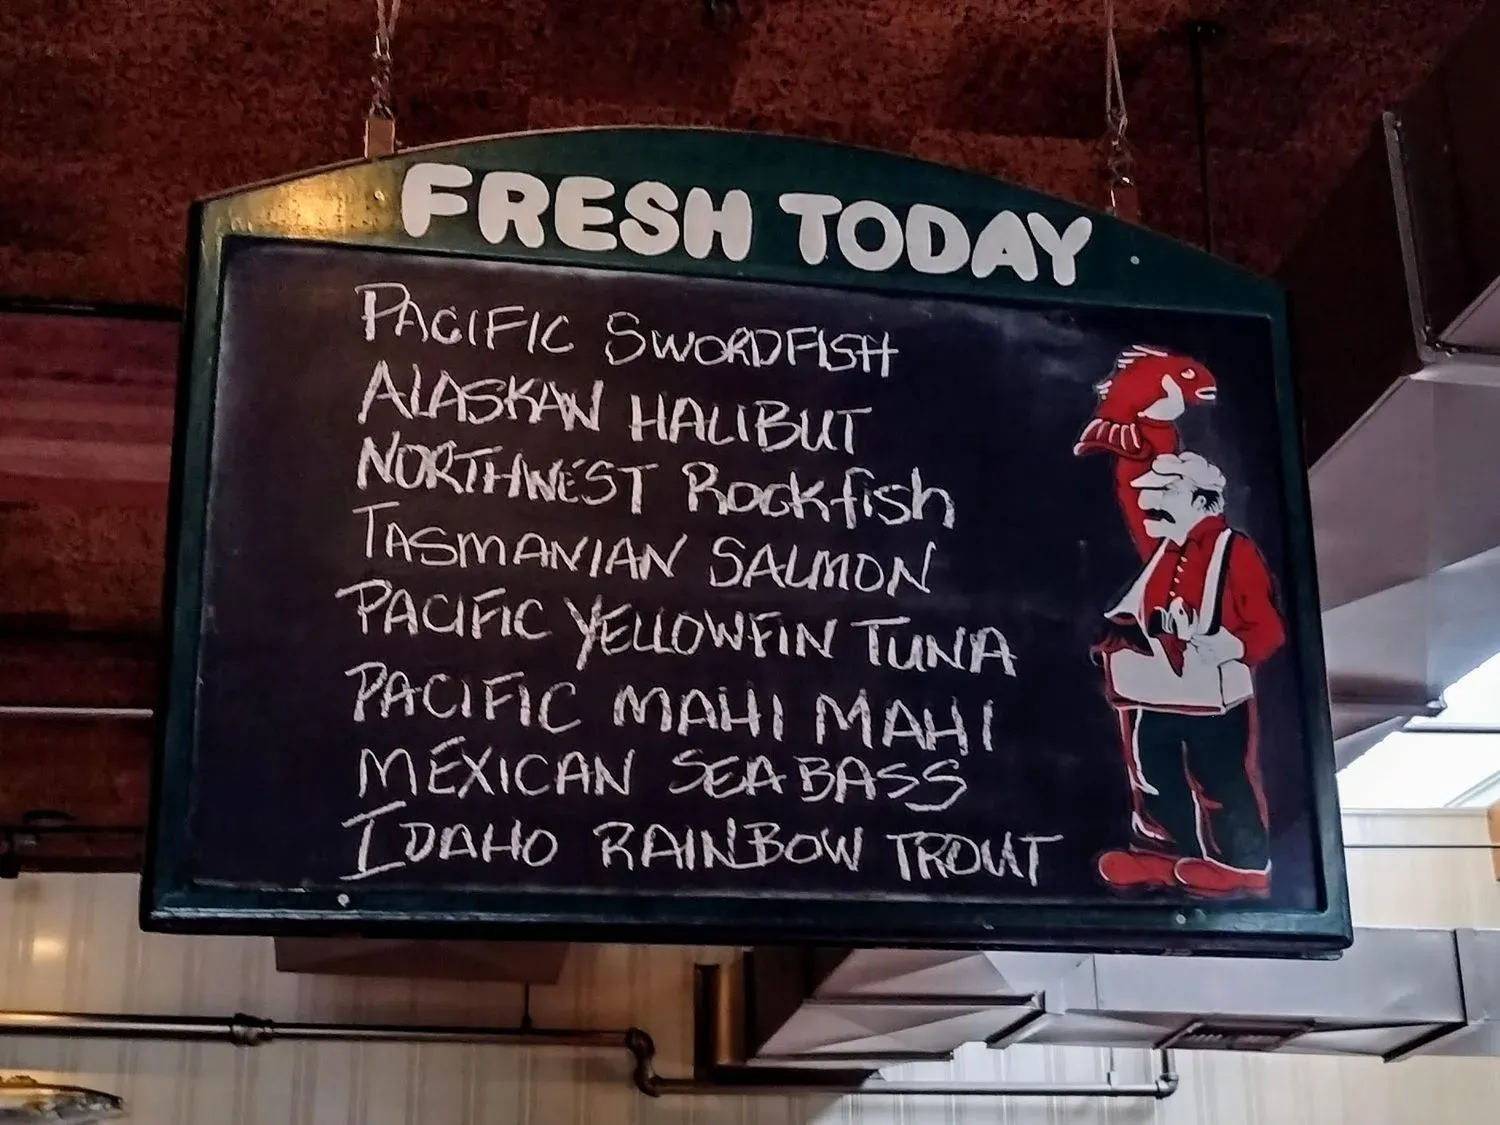 FRESH TODAY
PACIFIC SWORDFISH
ALASKAN HALIBUT
NORTHWEST Rockfish
TASMANIAN SALMON
PACIFIC YELLOWFIN TUNA
PACIFIC MAHI MAHI
MEXICAN SEABASS
IDAHO RAINBOW TROUT